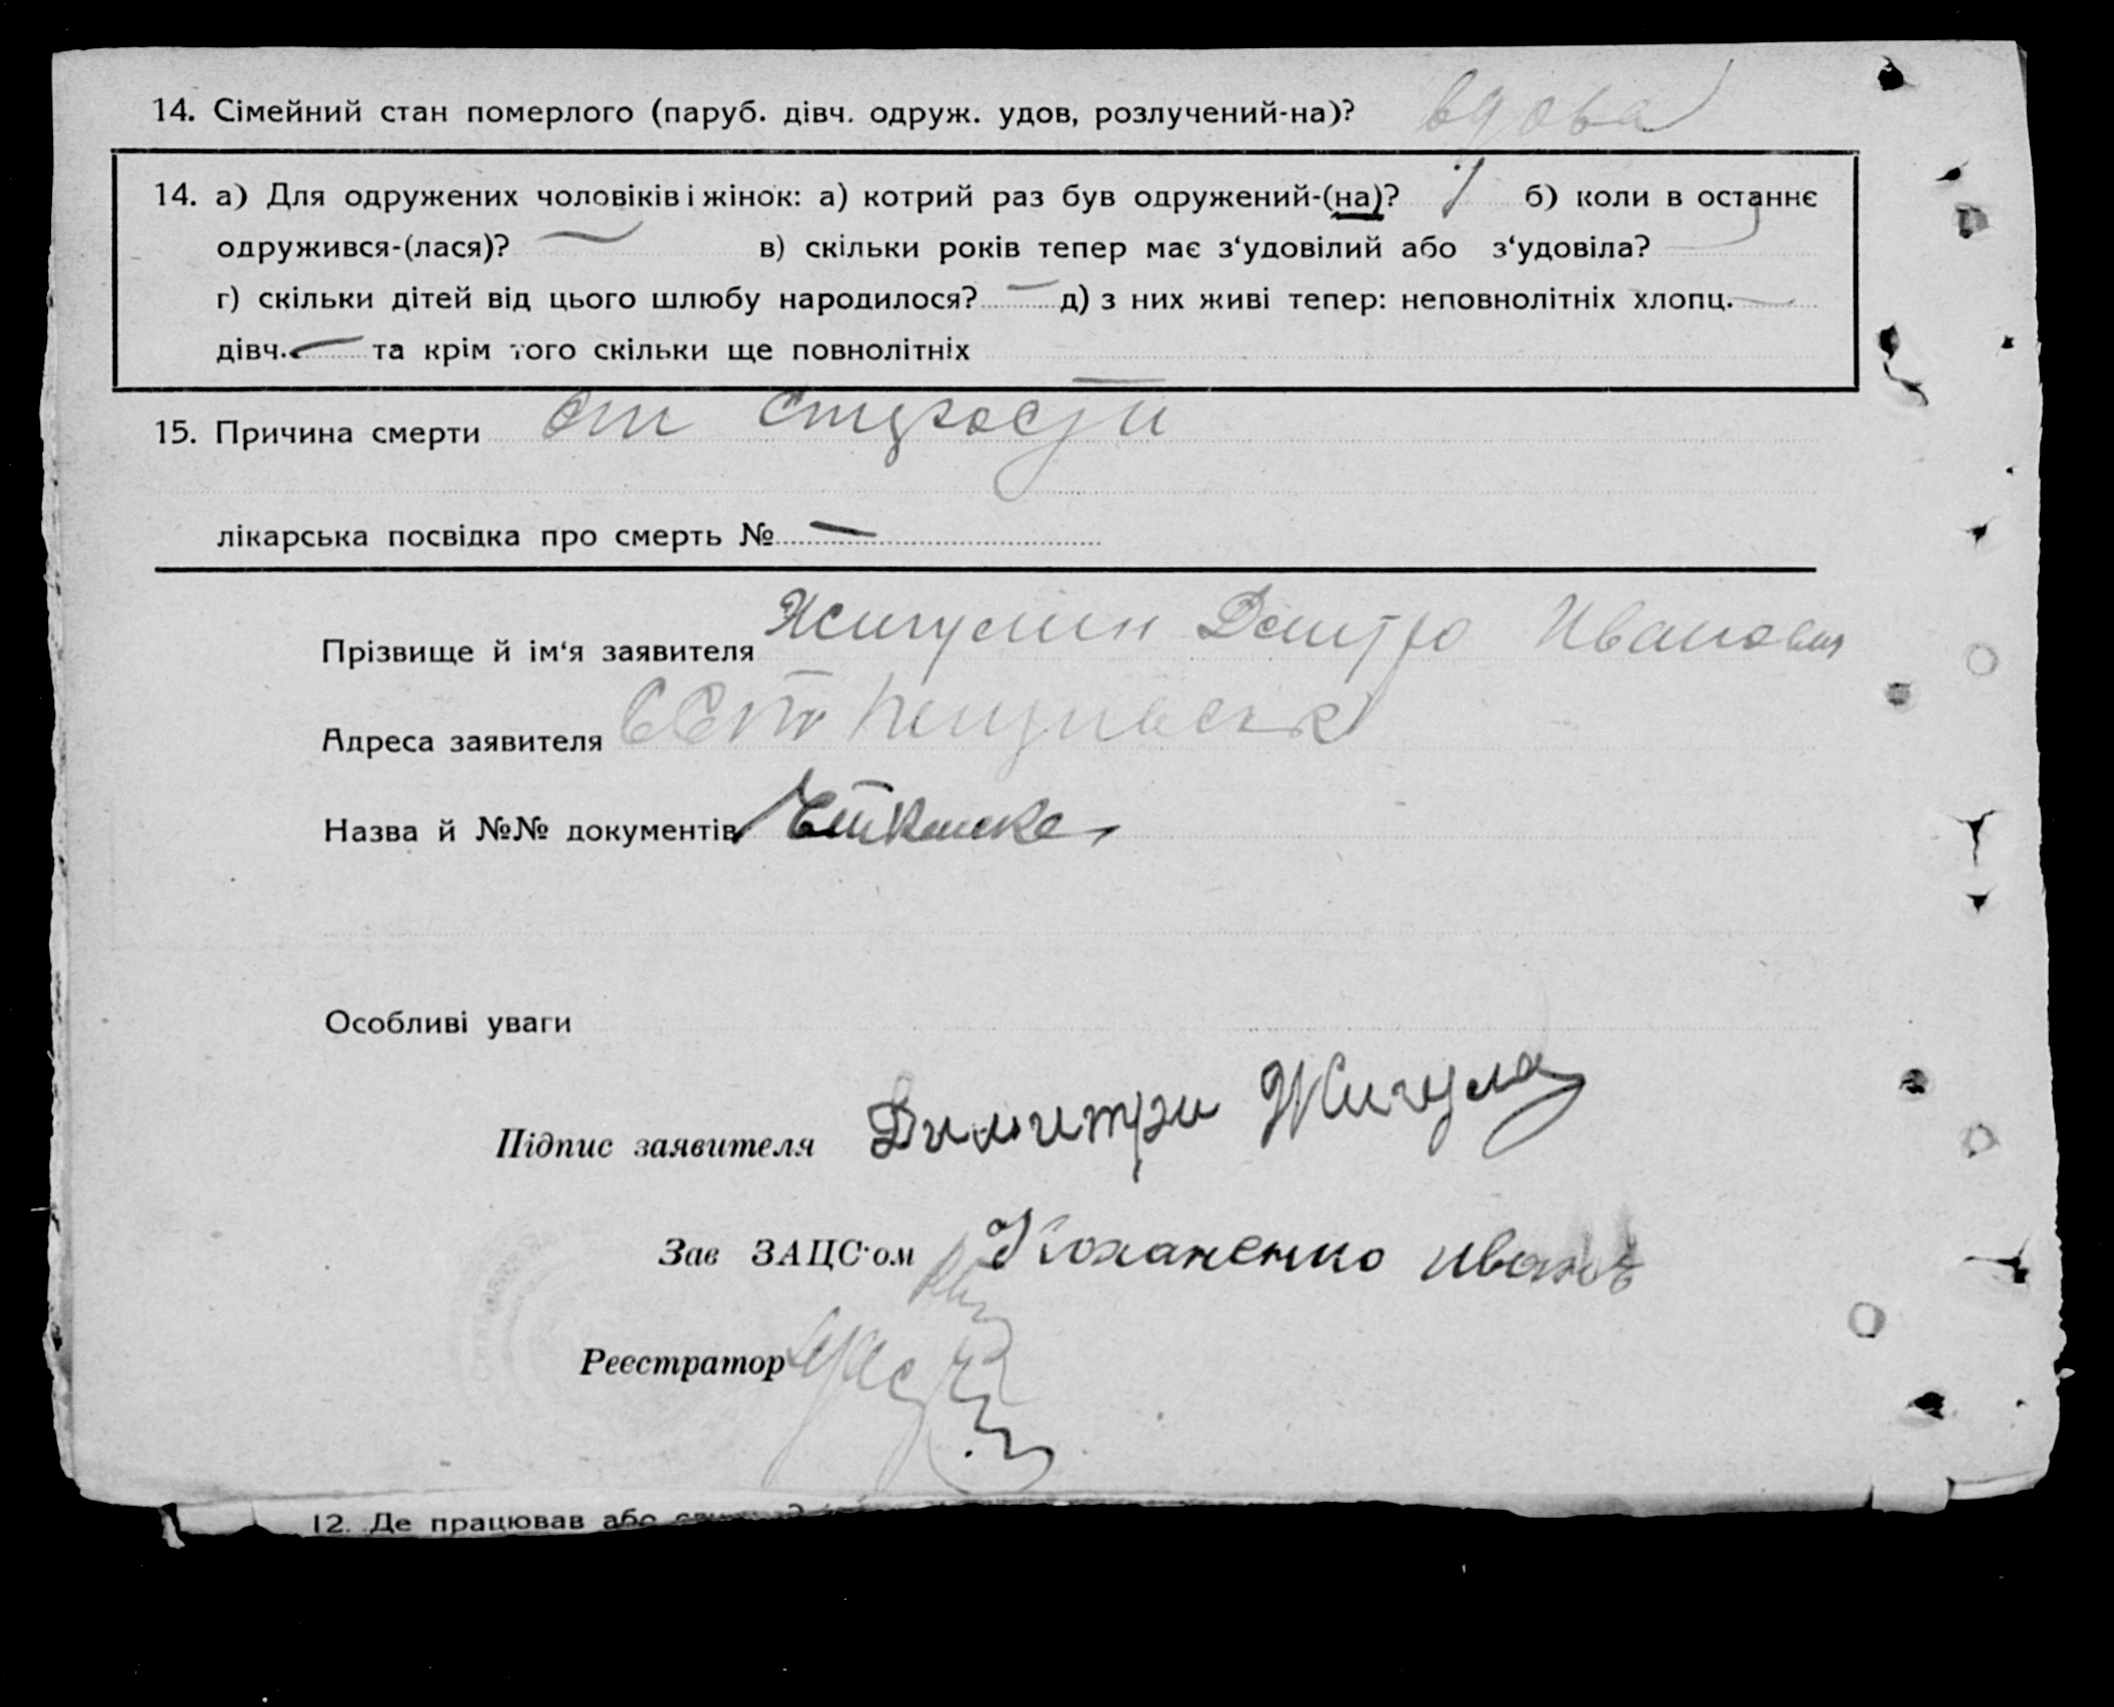 14. Сімейний стан померлого (паруб. дівч. одруж. удов, розлучений-на)? вдова
14. а) Для одружених чоловіків і жінок: а) котрий раз був одружений-(на)? 1 б) коли в останнє
одружився-(лася)? — в) скільки років тепер має з‘удовілий або з‘удовіла?
г) скільки дітей від цього шлюбу народилося? — д) з них живі тепер: неповнолітніх хлопц. —
дівч. — та крім того скільки ще повнолітніх —
15. Причина смерти от старости
лікарська посвідка про смерть № —
Прізвище й ім‘я заявителя Дмитро Иванович
Адреса заявителя
Назва й №№ документів
Особливі уваги
Підпис заявителя Димитри Жигула
Зав ЗАЦС‘ом Коханенко Иван
Реєстратор
12. Де працював або